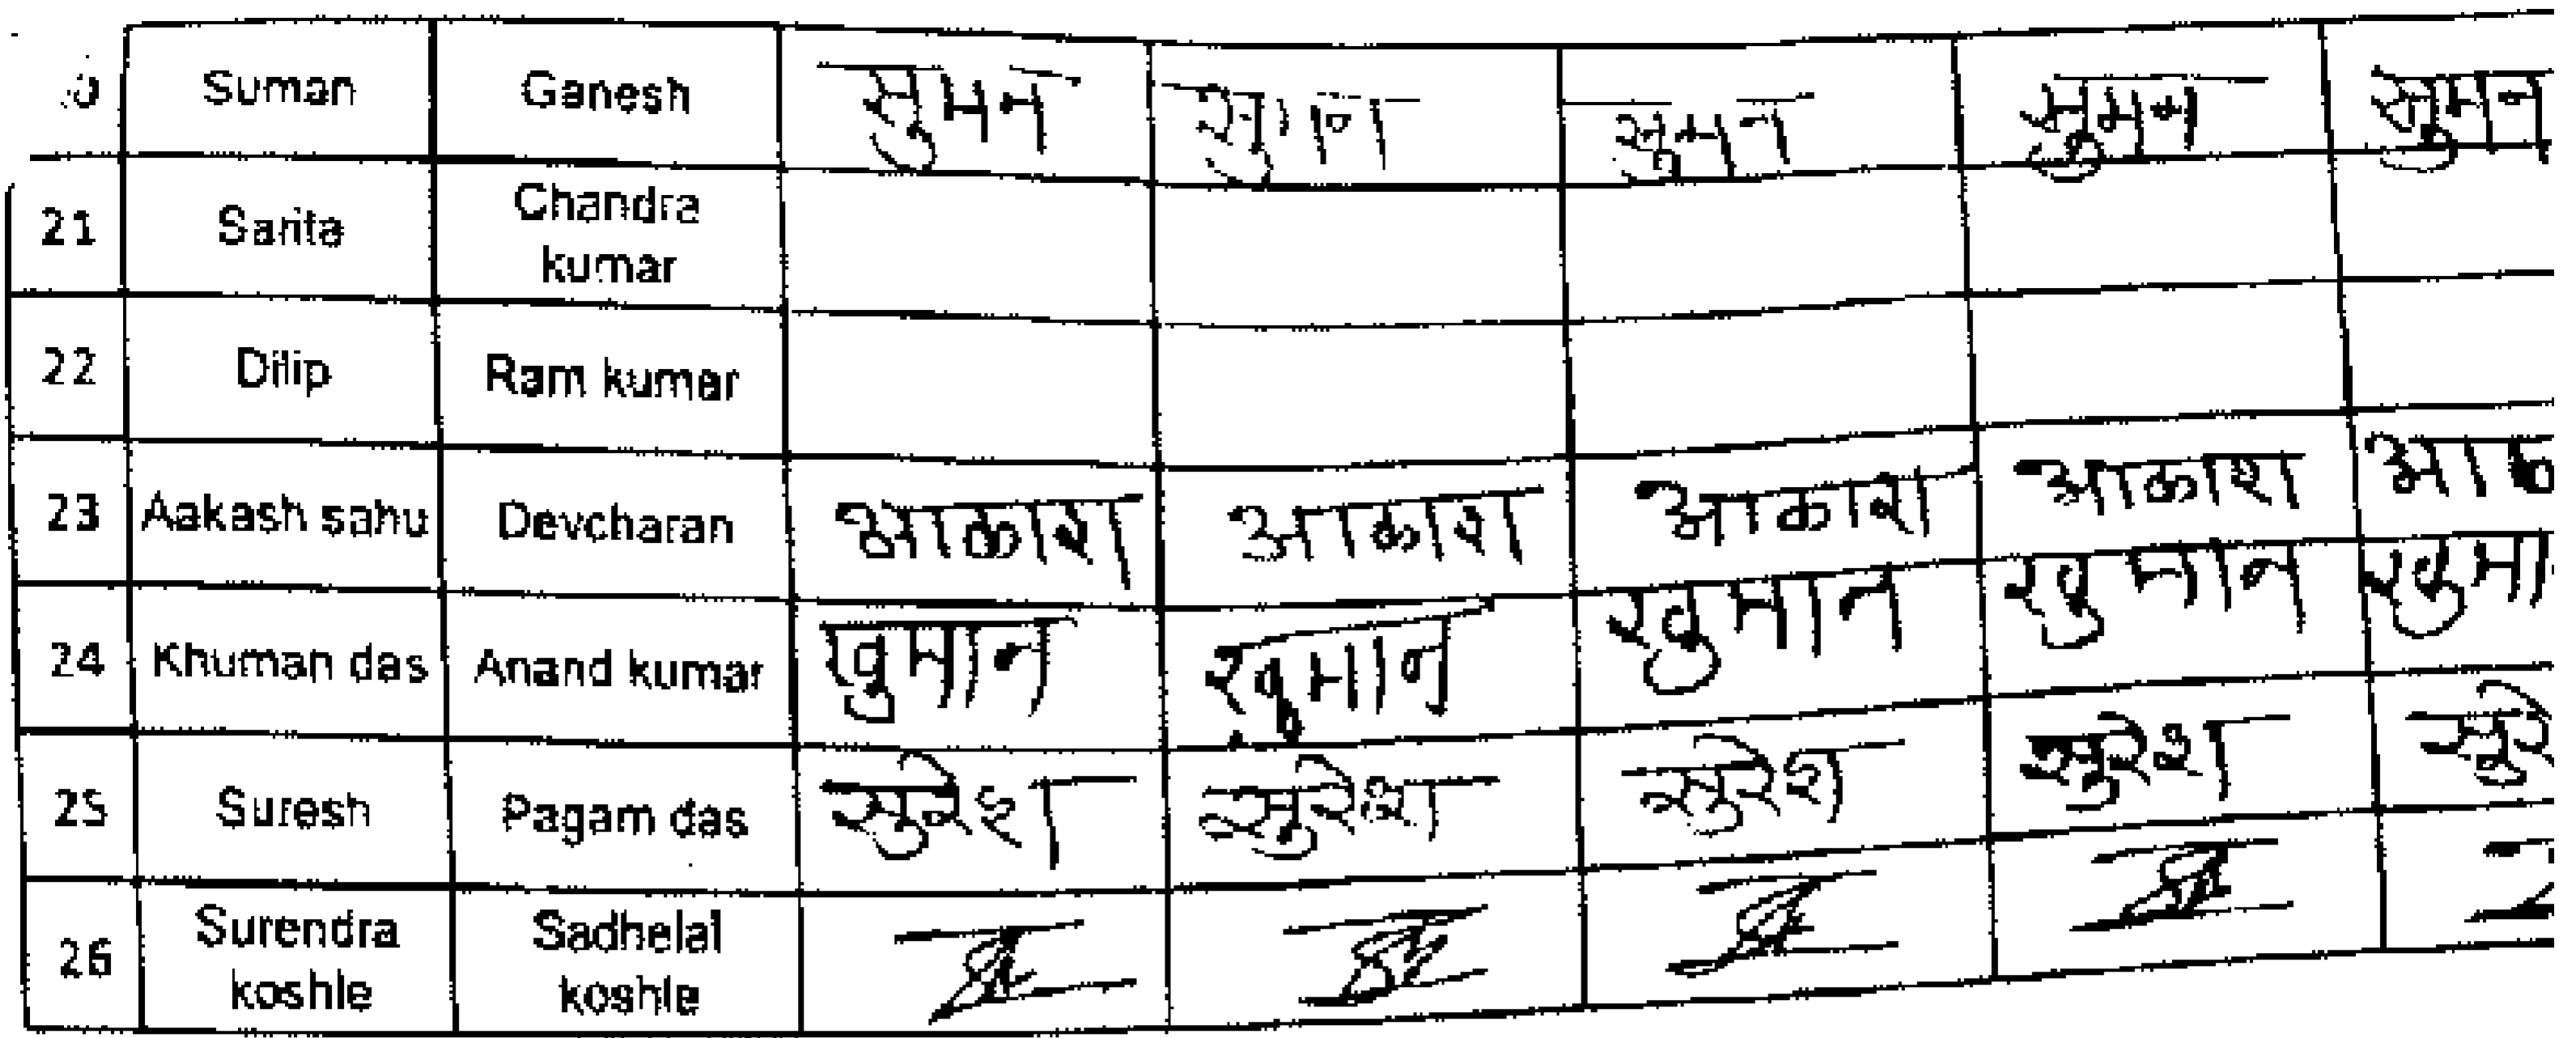 Suman Ganesh सुमन सुमन सुमन सुमन सुमन
21 Sarita Chandra kumar
22 Dilip Ram kumar
23 Aakash sahu Devcharan आकाश आकाश आकाश आकाश
24 Khuman das Anand kumar खुमान खुमान खुमान खुमान खुमा
25 Suresh Pagam das सुरेश सुरेश सुरेश सुरेश सुरे
26 Surendra koshle Sadhelal koshle